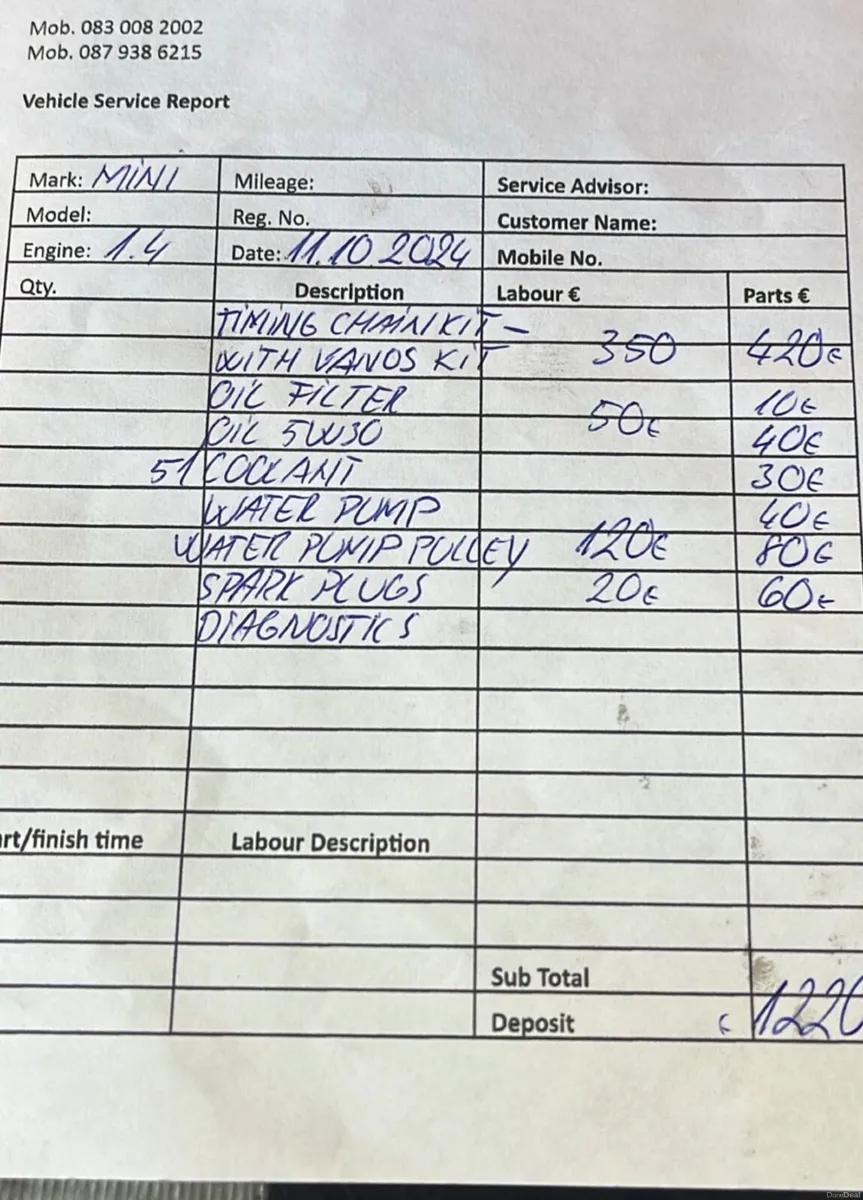 Mob. 083 008 2002
Mob. 087 938 6215
Vehicle Service Report
Mark: MINI Mileage: Service Advisor:
Model: Reg. No. Customer Name:
Engine: 1.4 Date: 11.10 2024 Mobile No.
Qty. Description Labour € Parts €
TIMING CHAIN KIT –
WITH VANOS KIT 350 420€
OIL FILTER 10€
OIL 5W30 50€ 40€
5l COOLANT 30€
WATER PUMP 40€
WATER PUMP PULLEY 120€ 80€
SPARK PLUGS 20€ 60€
DIAGNOSTICS
art/finish time Labour Description
Sub Total
Deposit € 1220
DoneDeal